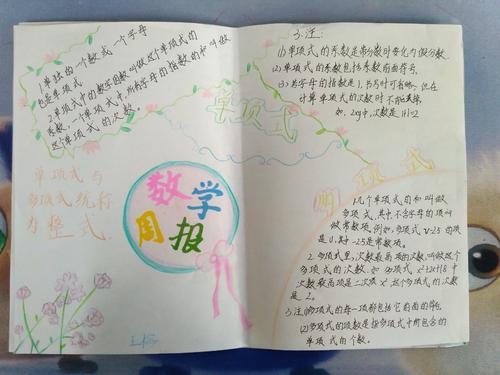 1.单独的一个数或一个字母
也是单项式.
2.单项式中的数字因数叫做这个单项式的
系数,一个单项式中,所有字母的指数的和叫做
这个单项式的次数
单项式
单项式与
多项式统称
为整式.
数学
周报
3.注:
(1)单项式的系数是带分数时要化为假分数.
(2)单项式的系数包括系数前面符号.
(3)若字母的指数是1,书写时可省略,但在
计算单项式的次数时不能遗漏.
如.2xy中,次数是1+1=2
项式
1.几个单项式的和叫做
多项式,其中不含字母的项叫
做常数项.例如,多项式v-2.5的项
是v,其中-2.5是常数项.
2.多项式里,次数最高项的次数,叫做这个
多项式的次数.如多项式x²+2x+18中
次数最高项是二次项x²这个多项式的次数
是2.
3.注(1)多项式的每一项都包括它前面的符号.
(2)多项式的项数是指多项式中所包含的
单项式的个数.